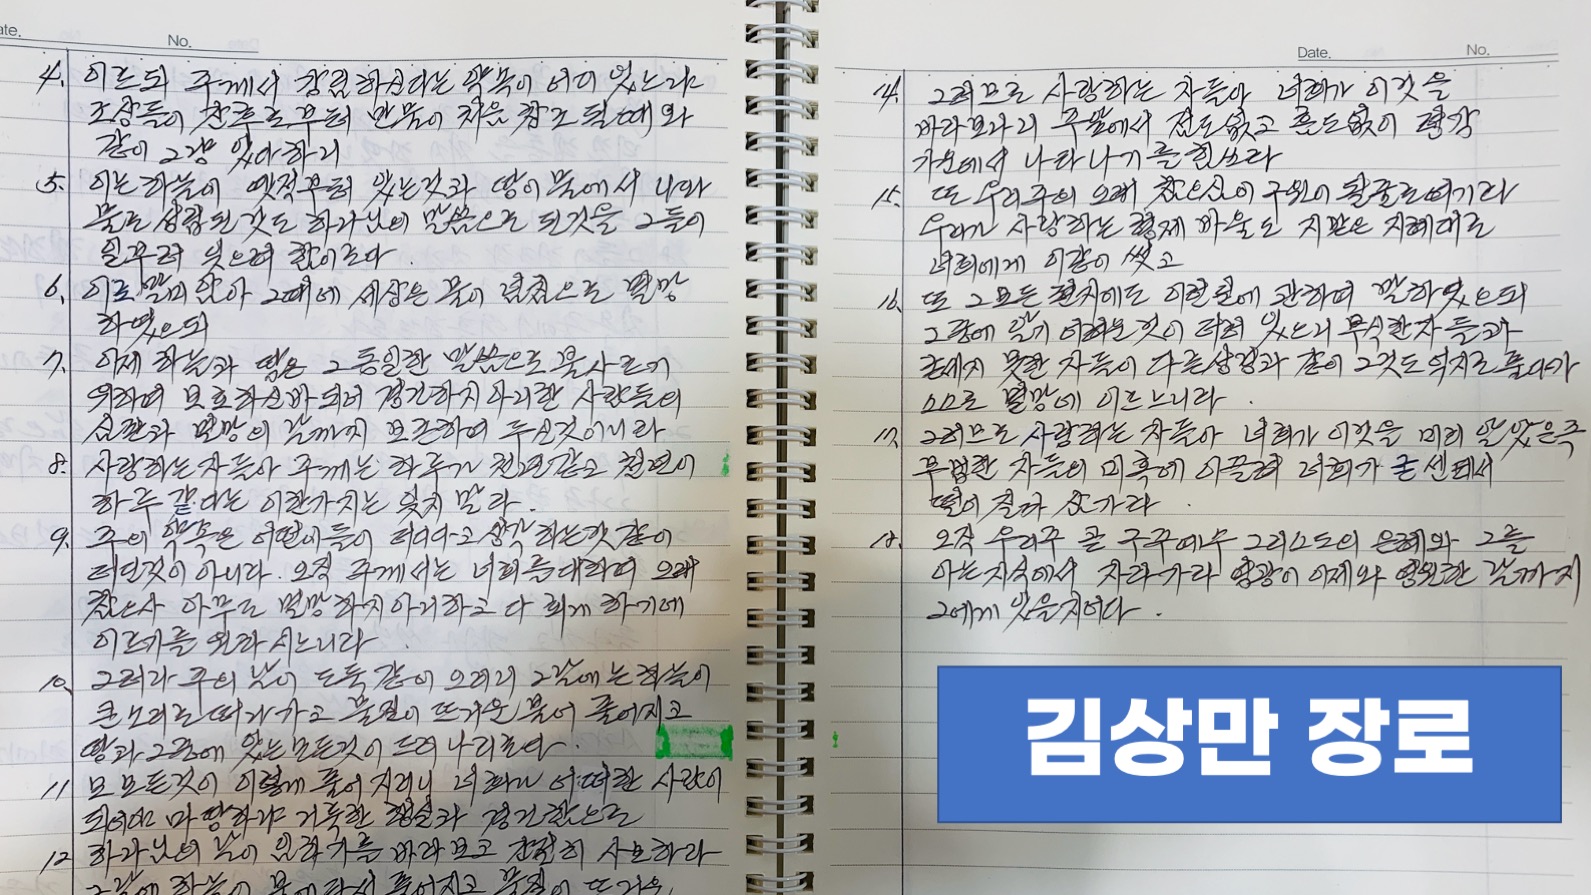 ate.
No.
4. 이르되 주께서 강림하신다는 약속이 어디 있느냐
조상들이 잔 후로부터 만물이 처음 창조 될 때와
같이 그냥 있다 하니
5. 이는 하늘이 옛적부터 있는것과 땅이 물에서 나와
물로 성립된 것도 하나님의 말씀으로 된것을 그들이
일부러 잊으려 함이로다.
6. 이로 말미암아 그때에 세상은 물이 넘침으로 멸망
하였으되
7. 이제 하늘과 땅은 그 동일한 말씀으로 불사르기
위하여 보호하신바 되어 경건하지 아니한 사람들의
심판과 멸망의 날까지 보존하여 두신것이니라
8. 사랑하는 자들아 주께는 하루가 천년같고 천년이
하루 같다는 이 한가지는 잊지 말라.
9. 주의 약속은 어떤이들이 더디다고 생각 하는것 같이
더딘것이 아니라. 오직 주께서는 너희를 대하여 오래
참으사 아무도 멸망하지 아니하고 다 회개 하기에
이르기를 원하시느니라.
10. 그러나 주의 날이 도둑 같이 오리니 그날에는 하늘이
큰 소리로 떠나 가고 물질이 뜨거운 불에 풀어지고
땅과 그중에 있는 모든것이 드러 나리로다.
11 모든것이 이렇게 풀어 지리니 너희가 어떠한 사람이
되어야 마땅하냐 거룩한 행실과 경건함으로
12 하나님의 날이 임하기를 바라보고 간절히 사모하라
그날에 하늘이 불에 타서 풀어지고 물질이 뜨거운
Date.
No.
14. 그러므로 사랑하는 자들아 너희가 이것을
바라보나니 주앞에서 점도 없고 흠도 없이 평강
가운데서 나타나기를 힘쓰라
15. 또 우리 주의 오래 참으심이 구원이 될줄로 여기라
우리가 사랑하는 형제 바울도 그 받은 지혜대로
너희에게 이같이 썼고
16. 또 그 모든 편지에도 이런 일에 관하여 말하였으되
그중에 알기 어려운것이 더러 있으니 무식한자 들과
굳세지 못한 자들이 다른 성경과 같이 그것도 억지로 풀다가
스스로 멸망에 이르느니라.
17. 그러므로 사랑하는 자들아 너희가 이것을 미리 알았은즉
무법한 자들의 미혹에 이끌려 너희가 굳센데서
떨어 질까 삼가라.
18. 오직 우리주 곧 구주 예수 그리스도의 은혜와 그를
아는 지식에서 자라 가라 영광이 이제와 영원한 날까지
그에게 있을지어다.
김상만 장로